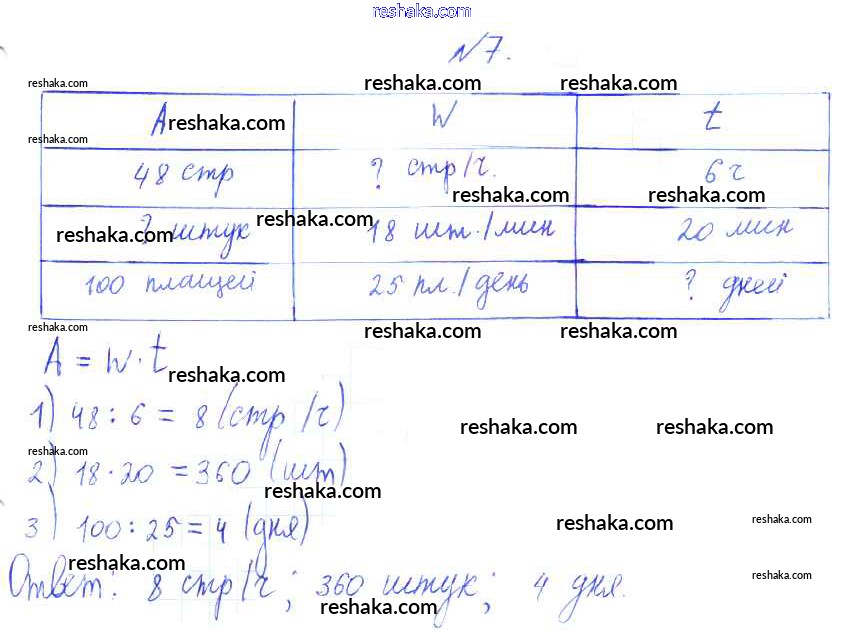 reshaka.com
№7.
reshaka.com reshaka.com reshaka.com
A reshaka.com W t
reshaka.com
48 стр ? стр/ч. 6 ч
reshaka.com reshaka.com
? штук reshaka.com 18 шт./мин 20 мин
reshaka.com
100 плащей 25 пл./день ? дней
reshaka.com reshaka.com reshaka.com
A = W · t
reshaka.com
1) 48 : 6 = 8 (стр/ч)
reshaka.com reshaka.com
reshaka.com
2) 18 · 20 = 360 (шт)
reshaka.com
3) 100 : 25 = 4 (дня)
reshaka.com reshaka.com
reshaka.com
Ответ: 8 стр/ч; 360 штук; 4 дня.
reshaka.com reshaka.com